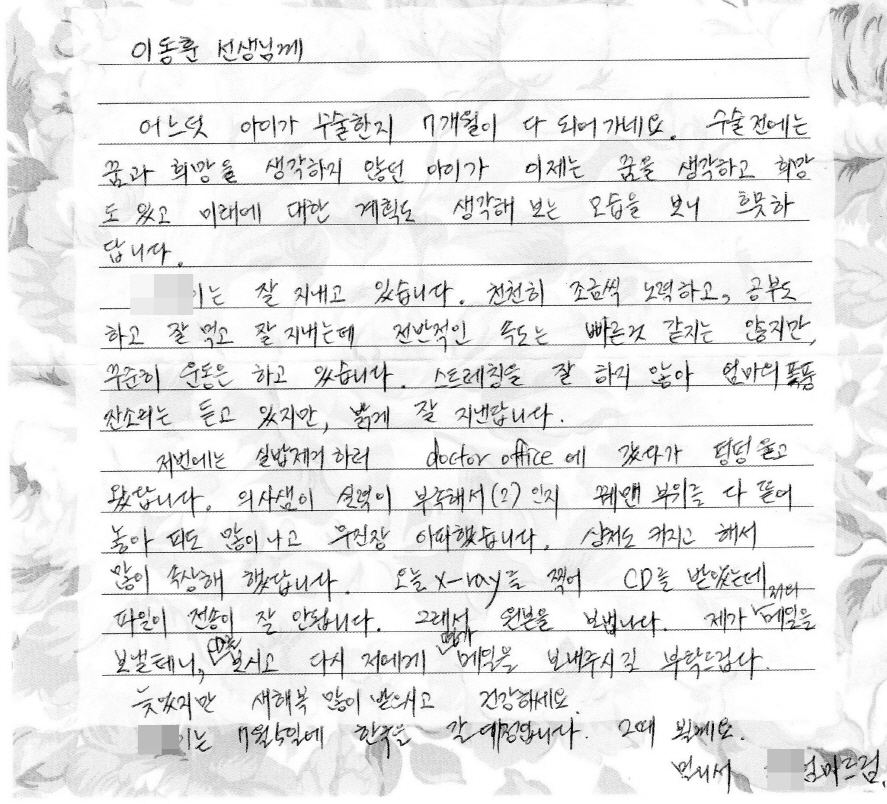 이동훈 선생님께
어느덧 아이가 수술한지 7개월이 다 되어가네요. 수술전에는
꿈과 희망을 생각하지 않던 아이가 이제는 꿈을 생각하고 희망
도 있고 미래에 대한 계획도 생각해 보는 모습을 보니 흐뭇하
답니다.
이는 잘 지내고 있습니다. 천천히 조금씩 노력하고, 공부도
하고 잘 먹고 잘 지내는데 전반적인 속도는 빠른것 같지는 않지만,
꾸준히 운동은 하고 있습니다. 스트레칭을 잘 하지 않아 엄마의 폭풍
잔소리는 듣고 있지만, 밝게 잘 지낸답니다.
저번에는 실밥제거 하러 doctor office에 갔다가 펑펑 울고
왔답니다. 의사샘이 실력이 부족해서(?)인지 꿰맨 부위를 다 뜯어
놓아 피도 많이 나고 무진장 아파했습니다. 상처도 커지고 해서
많이 속상해 했답니다. 오늘 x-ray를 찍어 CD를 받았는데
파일이 전송이 잘 안됩니다. 그래서 원본을 보냅니다. 제가 저의 메일을
보낼테니, CD를 보시고 다시 저에게 메일을 보내주시길 부탁드립니다.
늦었지만 새해복 많이 받으시고 건강하세요.
이는 7월5일에 한국을 갈 예정입니다. 그때 뵐게요.
멀리서 엄마드림.